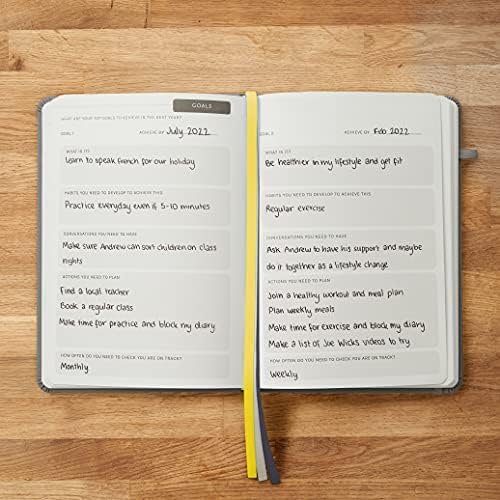 GOALS
WHAT ARE YOUR TOP GOALS TO ACHIEVE IN THE NEXT YEAR?
GOAL 1 ACHIEVE BY July 2022
WHAT IS IT?
Learn to speak french for our holiday
HABITS YOU NEED TO DEVELOP TO ACHIEVE THIS
Practice everyday even if 5-10 minutes
CONVERSATIONS YOU NEED TO HAVE
Make sure Andrew can sort children on class
nights
ACTIONS YOU NEED TO PLAN
Find a local teacher
Book a regular class
Make time for practice and block my diary
HOW OFTEN DO YOU NEED TO CHECK YOU ARE ON TRACK?
Monthly
GOAL 2 ACHIEVE BY Feb 2022
WHAT IS IT?
Be healthier in my lifestyle and get fit
HABITS YOU NEED TO DEVELOP TO ACHIEVE THIS
Regular exercise
CONVERSATIONS YOU NEED TO HAVE
Ask Andrew to have his support and maybe
do it together as a lifestyle change
ACTIONS YOU NEED TO PLAN
Join a healthy workout and meal plan
Plan weekly meals
Make time for exercise and block my diary
Make a list of Joe Wicks videos to try
HOW OFTEN DO YOU NEED TO CHECK YOU ARE ON TRACK?
Weekly